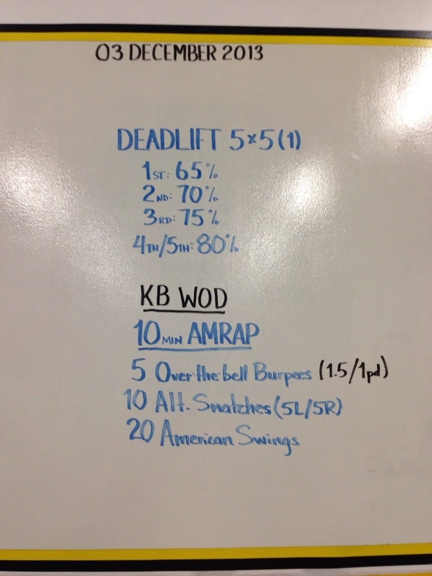 03 DECEMBER 2013
DEADLIFT 5x5(1)
1ST: 65%
2ND: 70%
3RD: 75%
4TH/5TH: 80%
KB WOD
10 MIN AMRAP
5 Over the bell Burpees (1.5/1pd)
10 Alt. Snatches (5L/5R)
20 American Swings